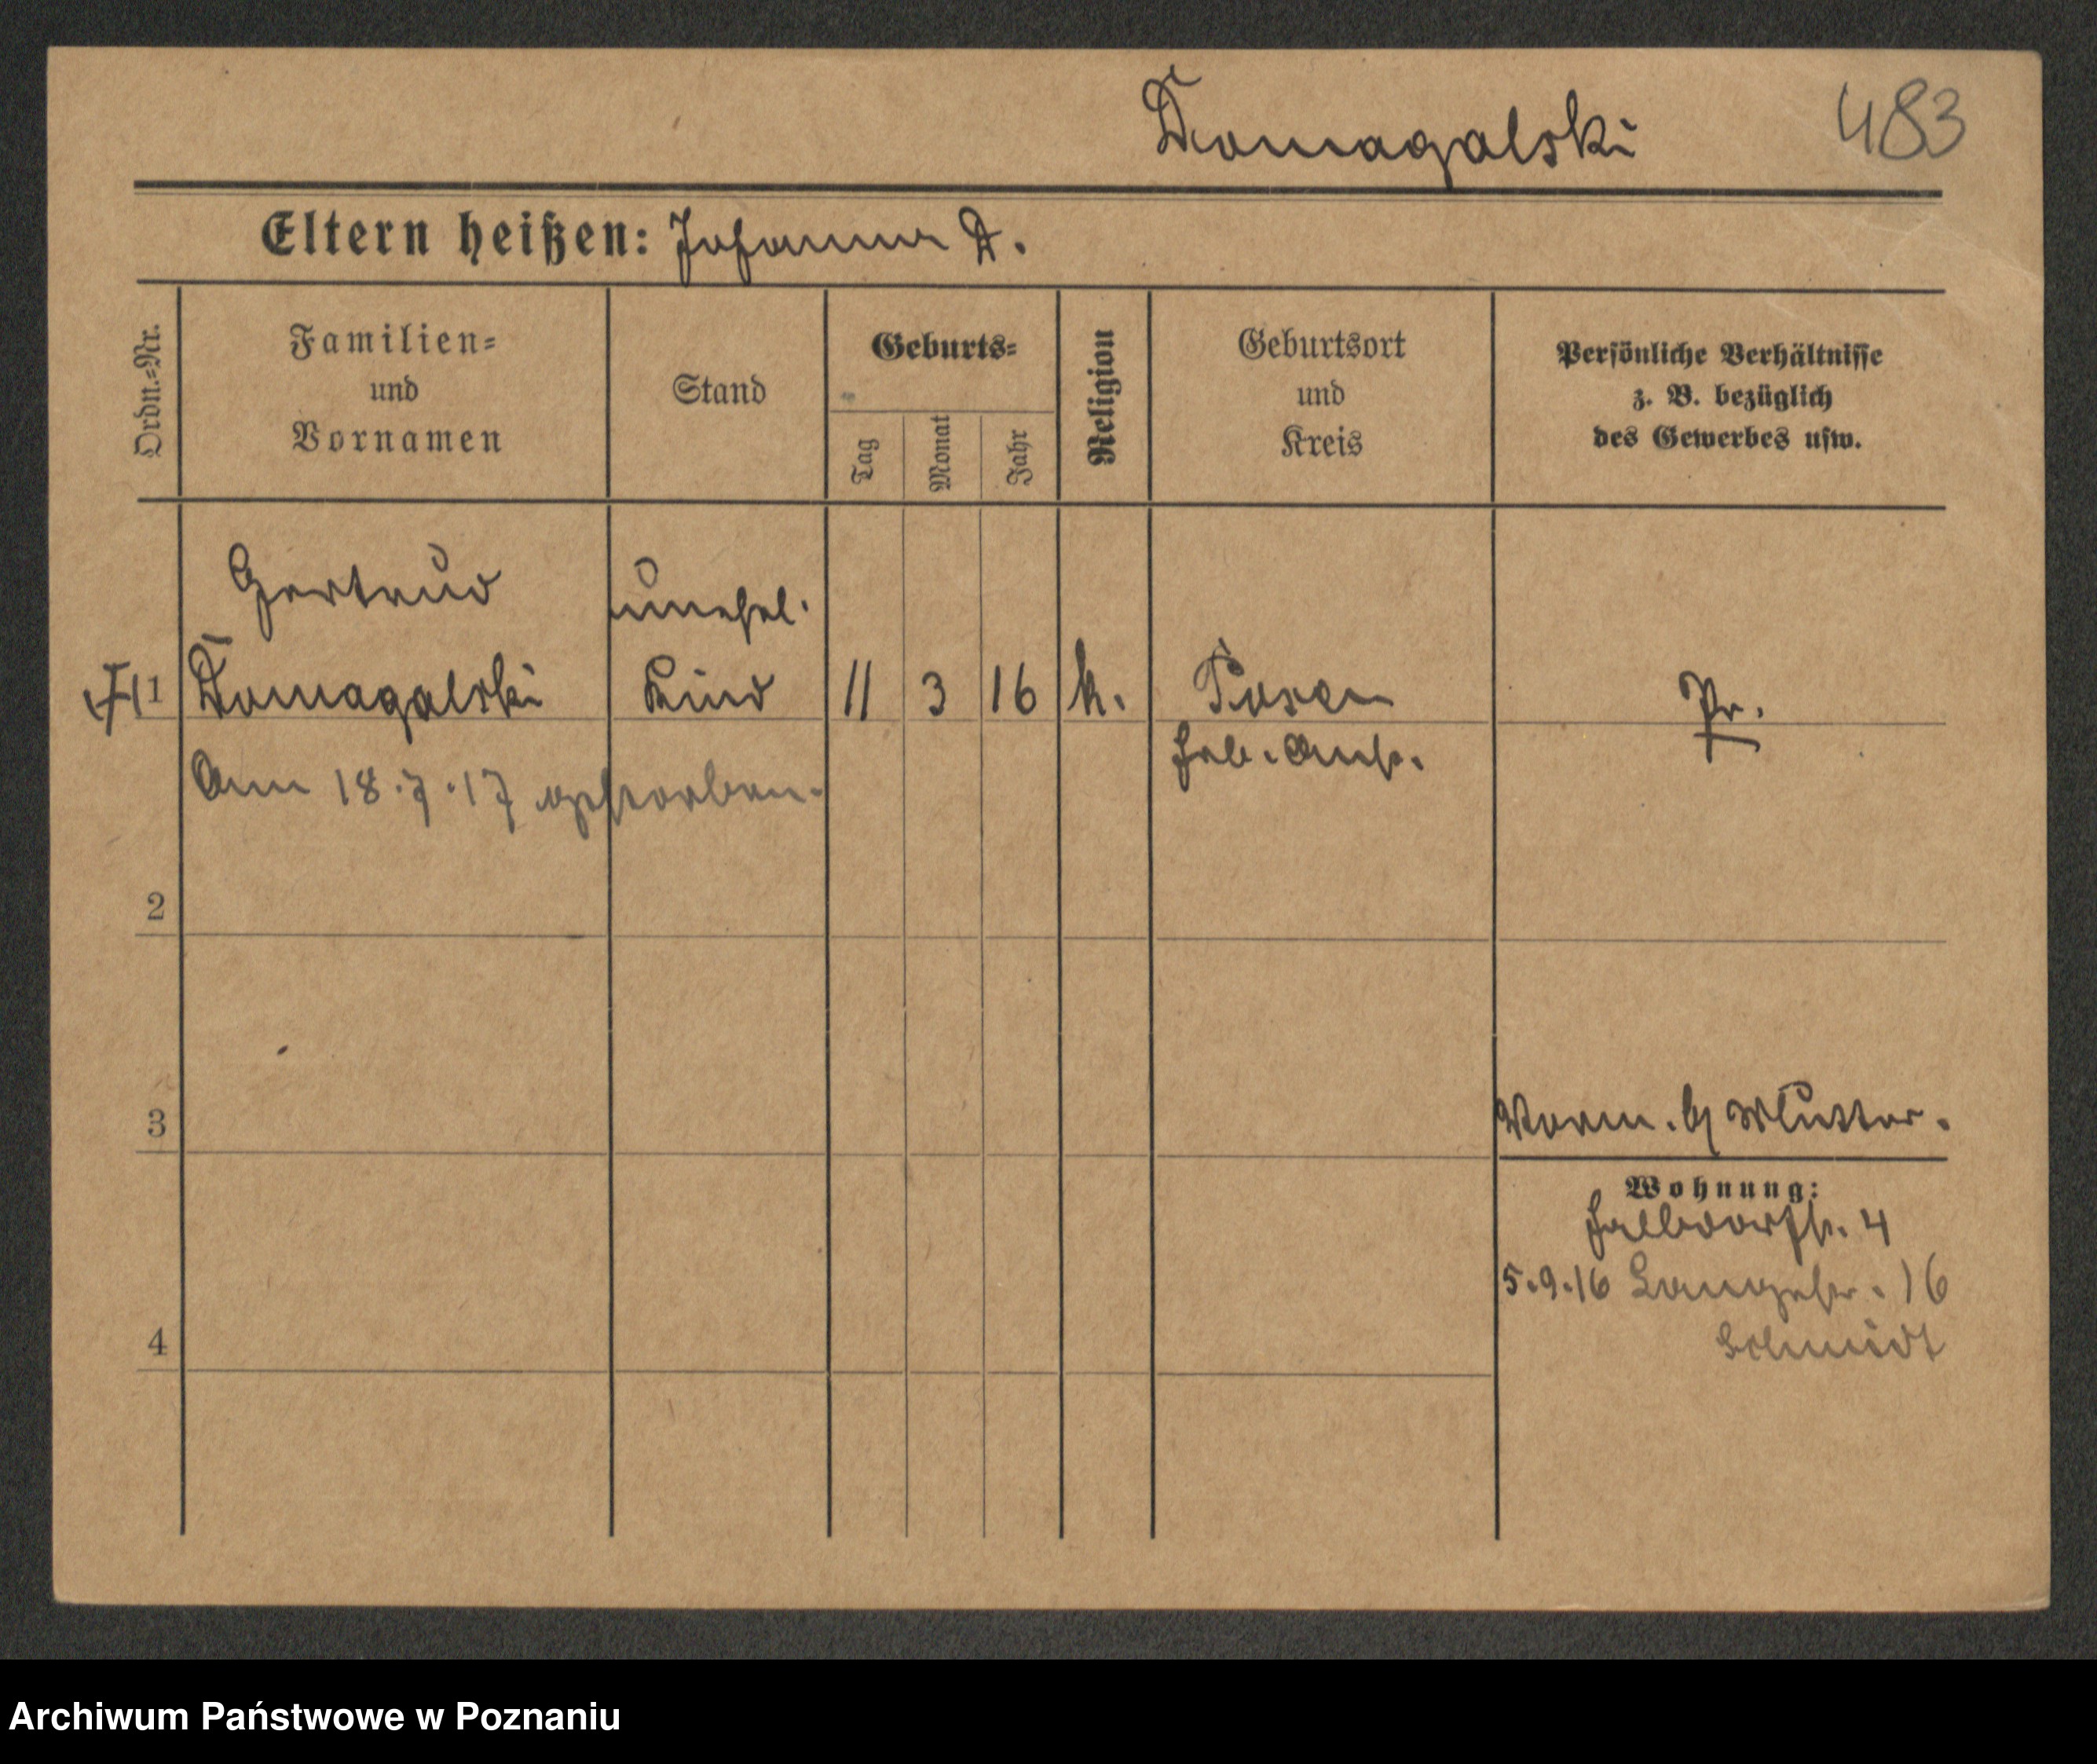 Domagalski 483
Eltern heißen: Johanna D.
Ordn.=Nr.
Familien=
und
Vornamen
Stand
Geburts=
Tag
Monat
Jahr
Religion
Geburtsort
und
Kreis
Persönliche Verhältnisse
z. B. bezüglich
des Gewerbes usw.
Gertrud unehel.
1 Domagalski Kind 11 3 16 k. Posen Pr.
Heb. Anst.
Am 18.7.17 gestorben.
2
3
Vorm. b/ Mutter.
Wohnung:
Halbdorfstr. 4
5.9.16 Langestr. 16
Schmidt
4
Archiwum Państwowe w Poznaniu